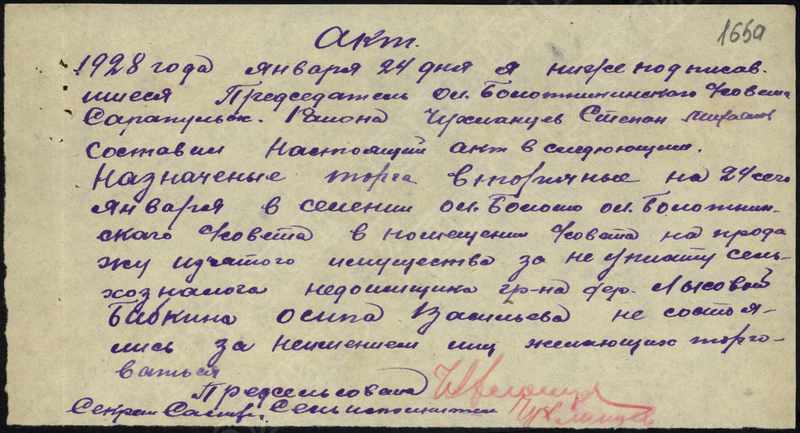 165а
Акт.
1928 года января 24 дня я нижеподписав-
шиеся Председатель Ол. Болотнинского Совета
Сарапульск. Района Чухланцев Степан
составил настоящий акт в следующим.
Назначеные торга вторичные на 24 сего
января в селении Ол. Болото Ол. Болотнин-
ского Совета в помещении Совета на прода
жу изъятого имущества за не уплату сель-
хозналога недоимщика гр-на дер. Лысовой
Бабкина Осипа Васильева не состоя-
лись за неимением лиц желающих торго-
ваться
Предсельсовета
Сельисполнитель